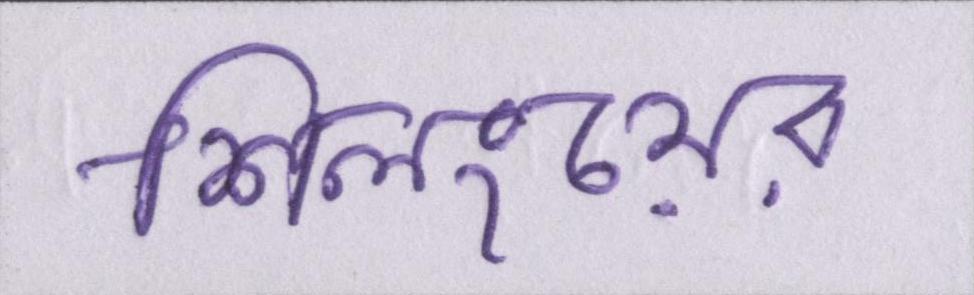 শিলংয়ের